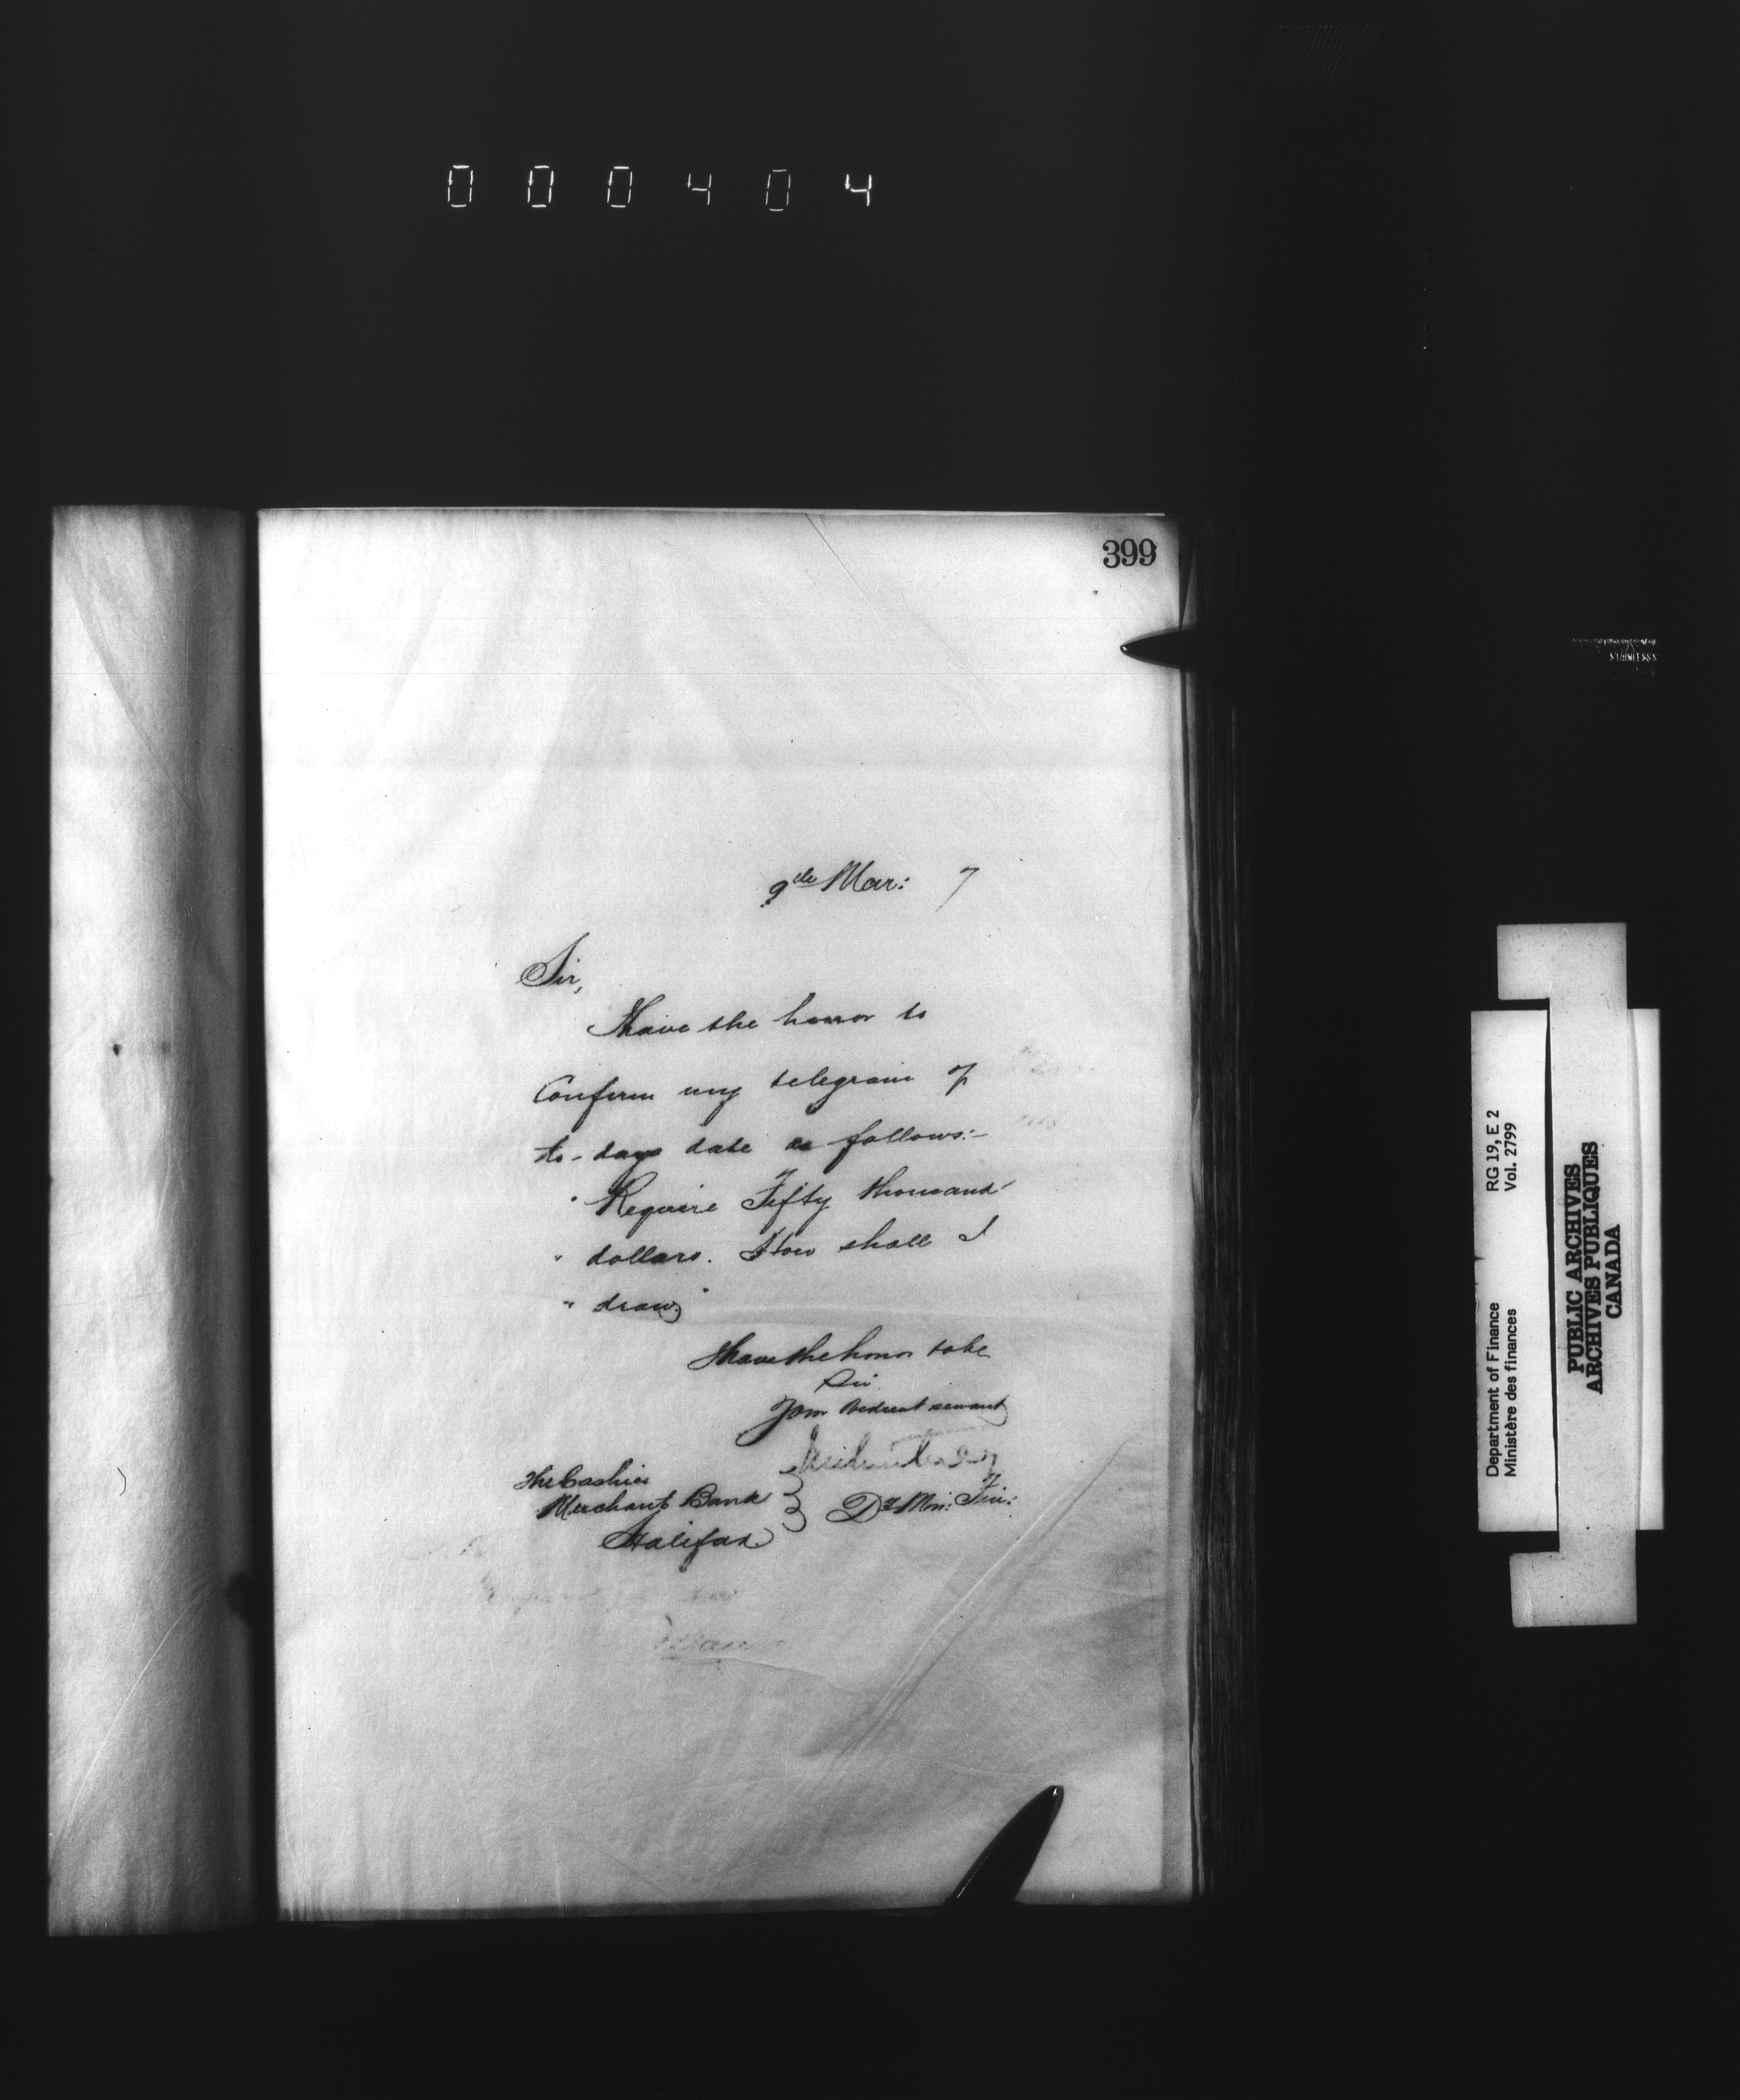 000404
399
9th Mar: 7
Sir,
I have the honor to
Confirm my telegram of
to-days date as follows:-
" Require Fifty thousand
" dollars. How shall I
" draw"
I have the honor to be
Sir
Your obedient servant
The Cashier
Merchants Bank
Halifax
Dy Min: Fin:
Department of Finance RG 19, E 2
Ministère des finances Vol. 2799
PUBLIC ARCHIVES
ARCHIVES PUBLIQUES
CANADA